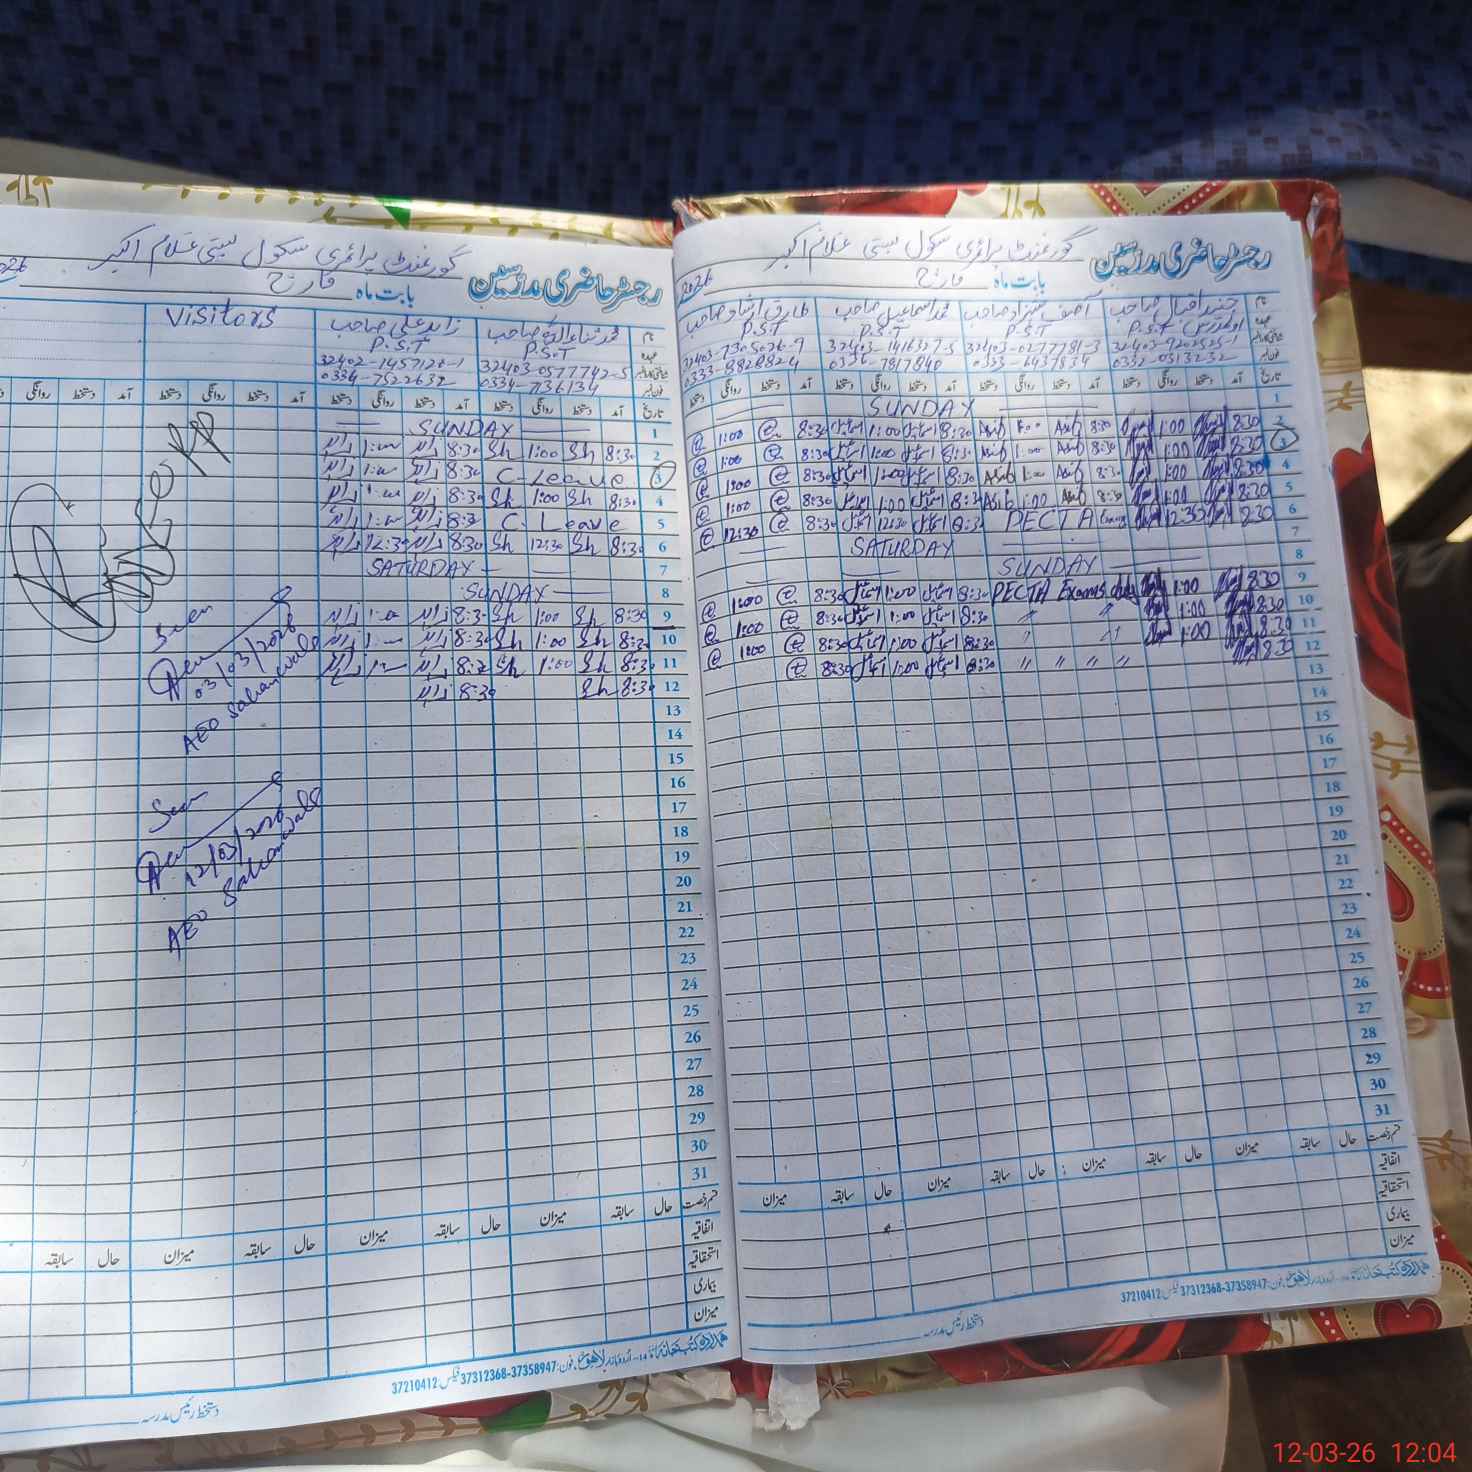 رجسٹر حاضری مدرسین
گورنمنٹ پرائمری سکول بستی غلام اکبر
بابت ماہ مارچ 2026
نام
جنید اقبال صاحب
آصف شہزاد صاحب
محمد اسماعیل صاحب
طارق ارشاد صاحب
P.S.T
P.S.T
P.S.T
32403-9202525-1
32403-0277781-3
32403-1416327-5
32403-7305026-9
0332-0313232
0333-6437834
0336-7817840
0333-8828824
تاریخ آمد دستخط روانگی دستخط آمد دستخط روانگی دستخط آمد دستخط روانگی دستخط آمد دستخط روانگی دستخط
1 SUNDAY
2 8:30 1:00 Asif 8:30 Asif 1:00 8:30 اسماعیل 1:00 اسماعیل 8:30 1:00
3 8:30 1:00 Asif 8:30 Asif 1:00 8:30 اسماعیل 1:00 اسماعیل 8:30 1:00
4 8:30 1:00 Asif 8:30 Asif 1:00 8:30 اسماعیل 1:00 اسماعیل 8:30 1:00
5 8:30 1:00 Asif 8:30 Asif 1:00 8:30 اسماعیل 1:00 اسماعیل 8:30 1:00
6 8:30 12:30 PECTA 8:30 اسماعیل 12:30 اسماعیل 8:30 12:30
7 SATURDAY
8 SUNDAY
9 8:30 1:00 PECTA Exams duty 8:30 اسماعیل 1:00 اسماعیل 8:30 1:00
10 8:30 1:00 " " 8:30 اسماعیل 1:00 اسماعیل 8:30 1:00
11 8:30 1:00 " " 8:30 اسماعیل 1:00 اسماعیل 8:30 1:00
12 8:30 " " " " 8:30 اسماعیل 1:00 اسماعیل 8:30
13
14
15
16
17
18
19
20
21
22
23
24
25
26
27
28
29
30
31
قسم رخصت حال سابقہ میزان حال سابقہ میزان حال سابقہ میزان حال سابقہ میزان
اتفاقیہ
استحقاقیہ
بیماری
میزان
فون: 37358947-37312368 فیکس: 37210412
دستخط رئیس مدرسہ
رجسٹر حاضری مدرسین
گورنمنٹ پرائمری سکول بستی غلام اکبر
بابت ماہ مارچ
نام
محمد ثناء اللہ صاحب
زاہد علی صاحب
Visitors
P.S.T
P.S.T
32403-0577742-5
32402-1457120-1
0334-7522632
تاریخ آمد دستخط روانگی دستخط آمد دستخط روانگی دستخط آمد دستخط روانگی دستخط آمد دستخط روانگی
1 SUNDAY
2 8:30 Sh 1:00 Sh 8:30 زاہد 1:00 زاہد
3 C-Leave 8:30 زاہد 1:00 زاہد
4 8:30 Sh 1:00 Sh 8:30 زاہد 1:00 زاہد
5 C. Leave 8:30 زاہد 1:00 زاہد
6 8:30 Sh 12:30 Sh 8:30 زاہد 12:30 زاہد
7 SATURDAY
8 SUNDAY
9 8:30 Sh 1:00 Sh 8:30 زاہد 1:00 زاہد
10 8:30 Sh 1:00 Sh 8:30 زاہد 1:00 زاہد
11 8:30 Sh 1:00 Sh 8:30 زاہد 1:00 زاہد
12 8:30 Sh 8:30 زاہد
13
14
15
16
17
18
19
20
21
22
23
24
25
26
27
28
29
30
31
Seen
03/03/2026
AEO Sakanwala
Seen
12/03/2026
AEO Sakanwala
قسم رخصت حال سابقہ میزان حال سابقہ میزان حال سابقہ میزان حال سابقہ
اتفاقیہ
استحقاقیہ
بیماری
میزان
فون: 37358947-37312368 فیکس: 37210412
دستخط رئیس مدرسہ
12-03-26 12:04